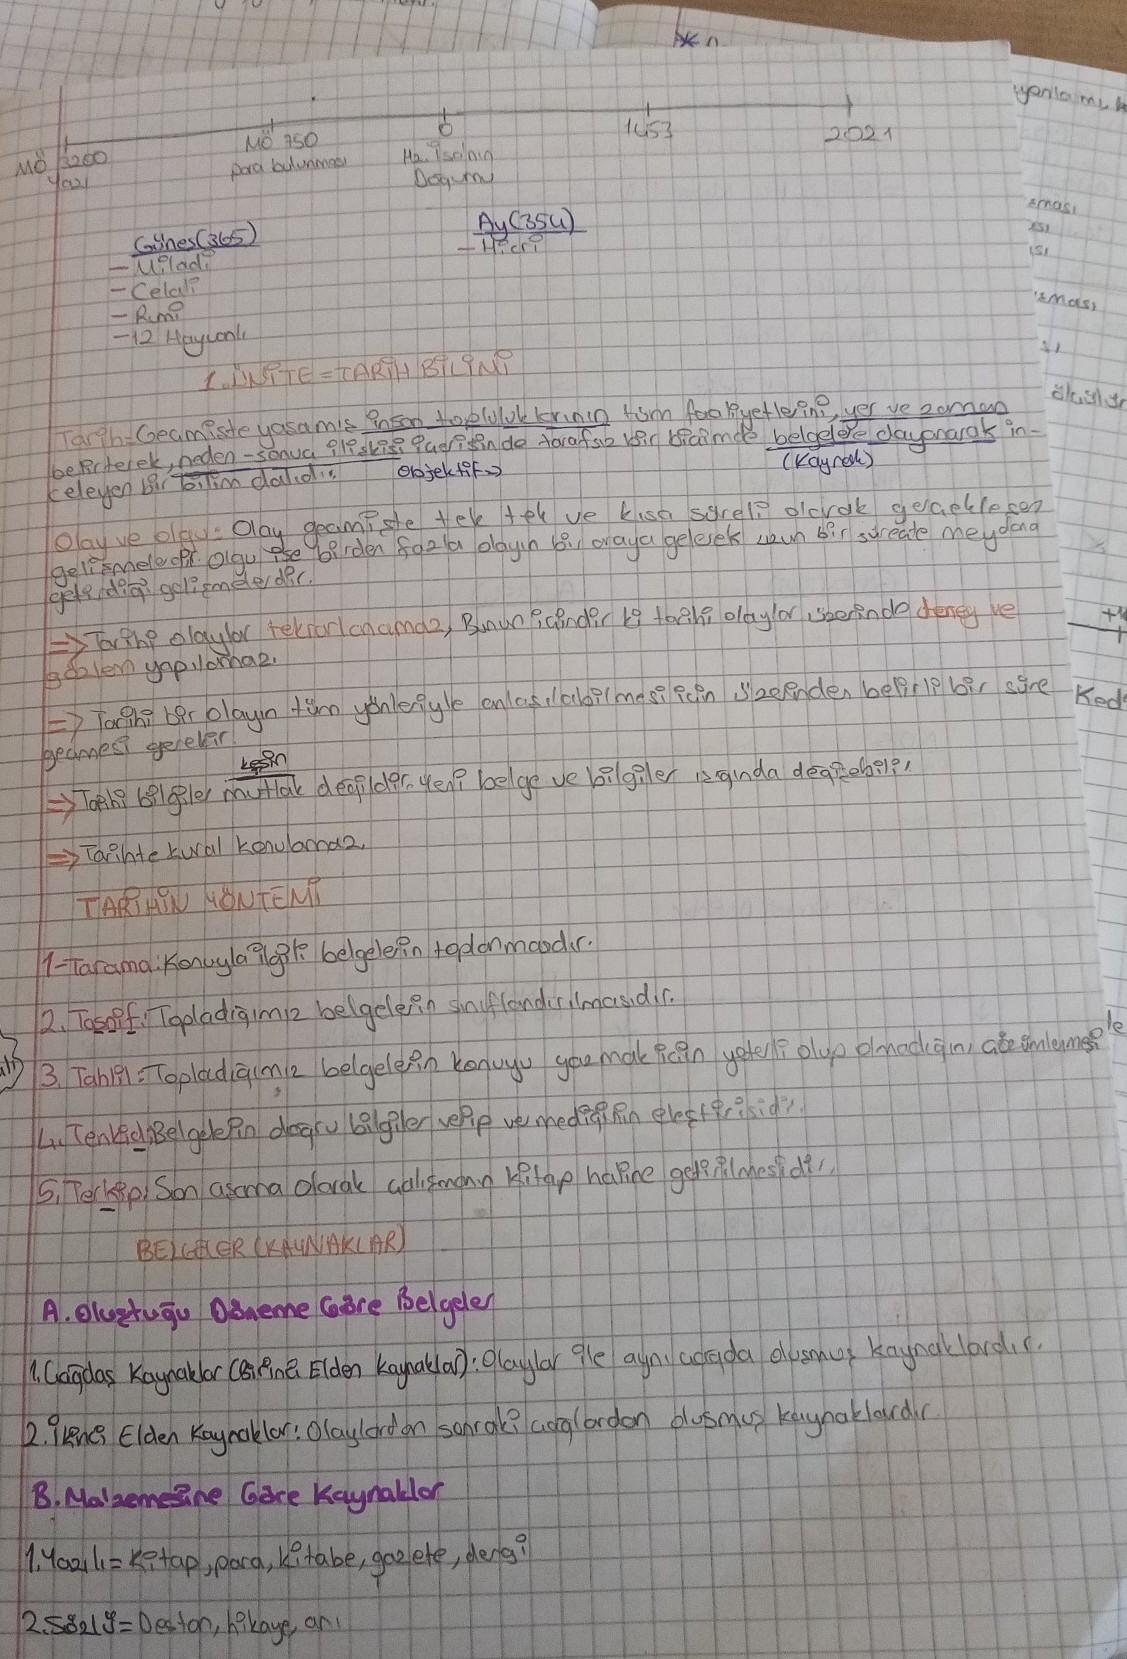 MÖ 3200
Yazı
MÖ 750
para bulunması
0
Hz. İsa'nın
Doğumu
1453
2021
Güneş(365)
- Miladi
- Celali
- Rumi
- 12 Hayvanlı
Ay(354)
- Hicri
1.ÜNİTE=TARİH BİLİMİ
Tarih=Geçmişte yaşamış insan topluluklarının tüm faaliyetlerini, yer ve zaman
belirterek, neden-sonuç ilişkisi içerisinde tarafsız bir biçimde belgelere dayanarak in-
celeyen bir bilim dalıdır.
Objektif
(Kaynak)
Olay ve olgu= Olay geçmişte tek tek ve kısa süreli olarak gerçekleşen
gelişmelerdir. Olgu ise birden fazla olayın bir araya gelerek uzun bir süreçte meydana
getirdiği gelişmelerdir.
=> Tarihi olaylar tekrarlanamaz, Bunun içindir ki tarihi olaylar üzerinde deney ve
gözlem yapılamaz.
=> Tarihi bir olayın tüm yönleriyle anlaşılabilmesi için üzerinden belirli bir süre
geçmesi gerekir.
kesin
=> Tarihi bilgiler mutlak değildir. Yeni belge ve bilgiler ışığında değişebilir.
=> Tarihte kural konulamaz.
TARİHİN YÖNTEMİ
1-Tarama: Konuyla ilgili belgelerin toplanmasıdır.
2. Tasnif: Topladığımız belgelerin sınıflandırılmasıdır.
3. Tahlil= Topladığımız belgelerin konuyu yazmak için yeterli olup olmadığını çözümlemesi
4. Tenkid: Belgelerin doğru bilgiler verip vermediğinin eleştirisidir.
5. Terkip: Son aşama olarak çalışmanın kitap haline getirilmesidir.
BELGELER (KAYNAKLAR)
A. Oluştuğu Döneme Göre Belgeler
1. Çağdaş Kaynaklar (Birinci Elden Kaynaklar): Olaylar ile aynı çağda oluşmuş kaynaklardır.
2. İkinci Elden Kaynaklar: Olaylardan sonraki çağlardan oluşmuş kaynaklardır
B. Malzemesine Göre Kaynaklar
1. Yazılı= Kitap, para, kitabe, gazete, dergi
2. Sözlü= Destan, hikaye, anı